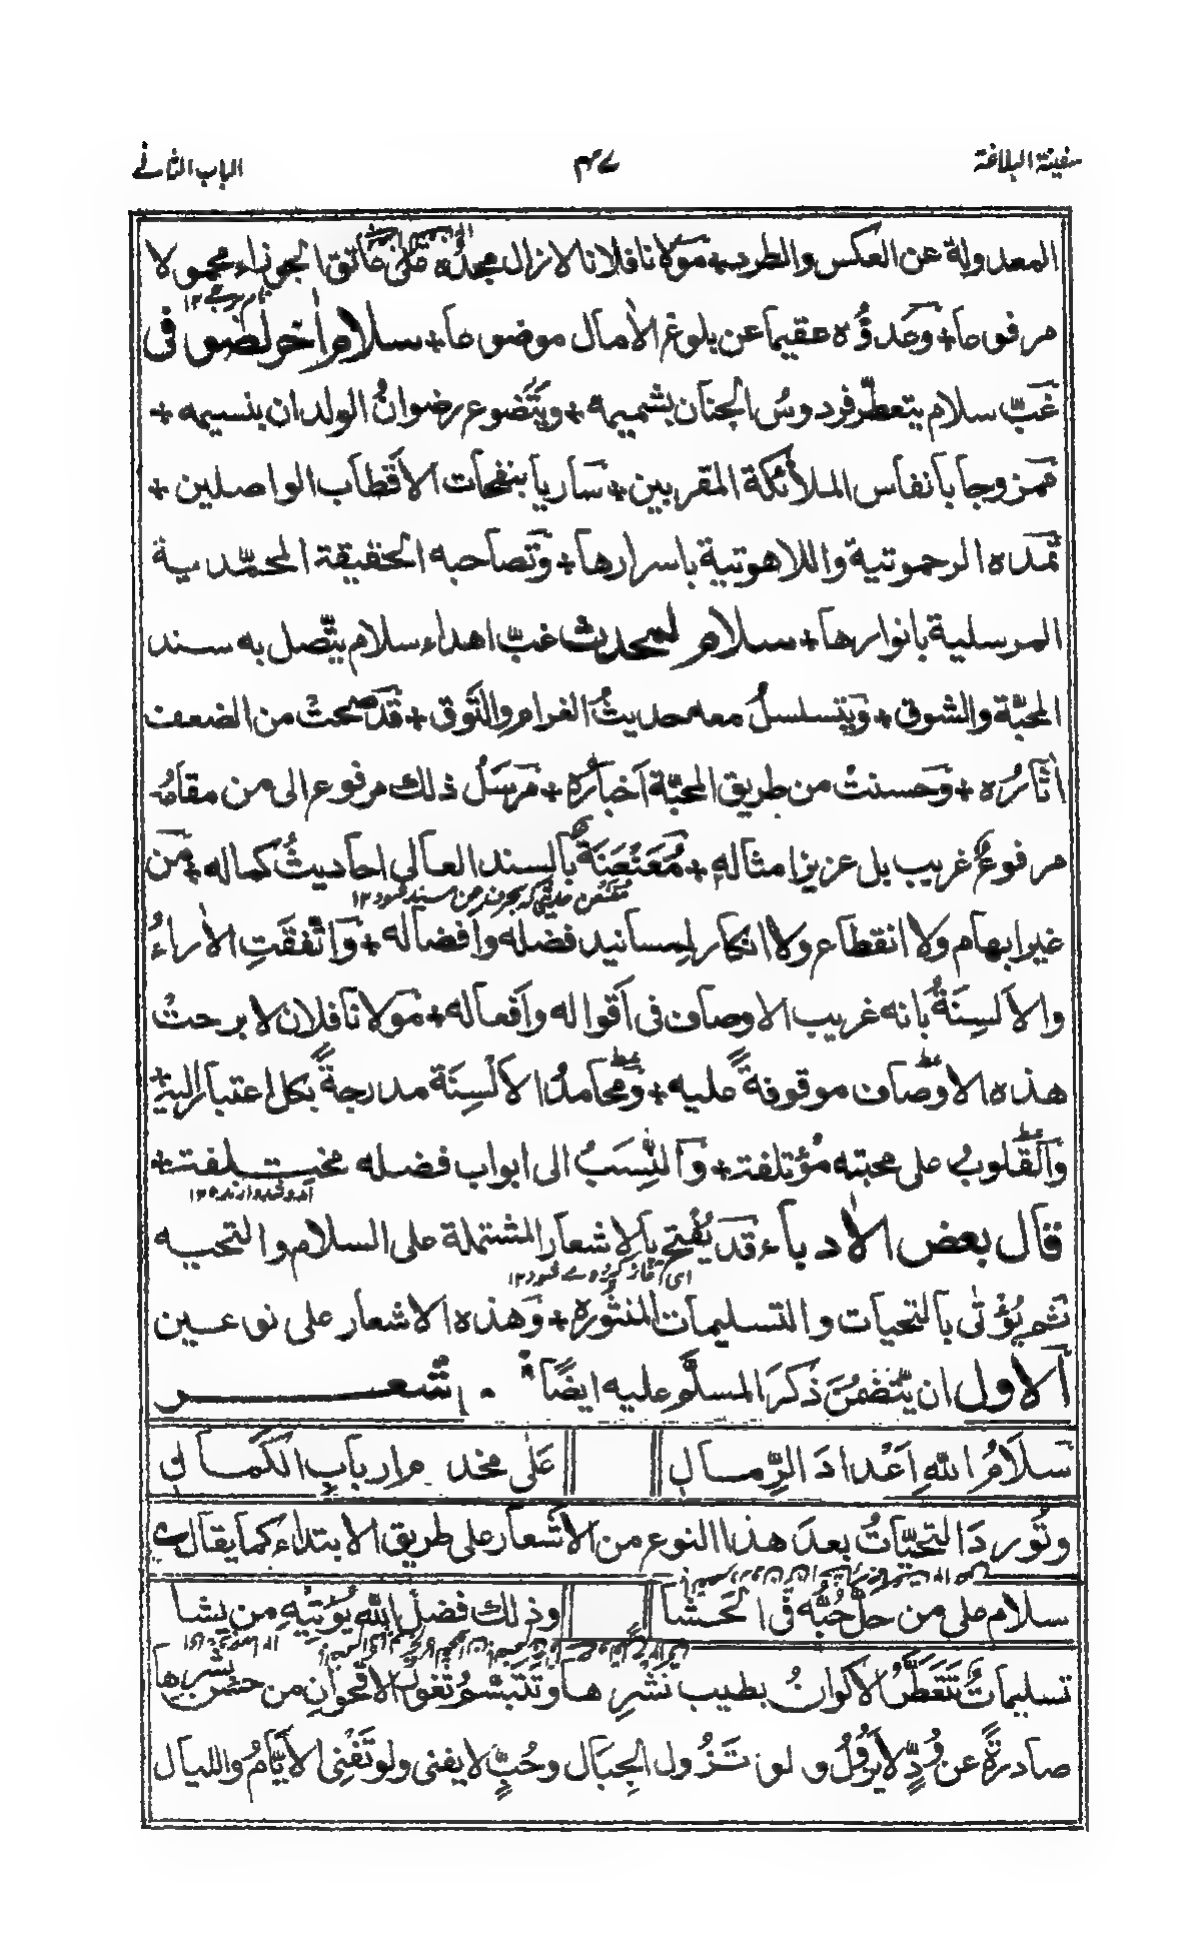 سفينة البلاغة
٤٧
الباب الثاني
المعدولة عن العكس والطرد + مولانا فلانا لازال مجدُه على عاتق الجوزاء محمولا
مرفوعا + وعدوُّه عقيما عن بلوغ الاٰمال موضوعا + سلام اٰخر لضو فى
غبّ سلام يتعطّر فردوسُ الجنان بشميمه + ويتضوع رضوانُ الولدان بنسيمه +
ممزوجا بانفاس الملائكة المقربين + ساريا بنفحات الاقطاب الواصلين +
تمده الرحموتية واللاهوتية باسرارها + وتصاحبه الحقيقة المحمّدية
المرسلية بانوارها + سلام لمحدث غبّ اهداء سلام يتّصل به سند
المحبّة والشوق + ويتسلسلُ معه حديثُ الغرام والتوق + قد صحتْ من الضعف
اٰثارُه + وحسنتْ من طريق المحبّة اخبارُه + مرسَلُ ذلك مرفوع الى من مقامُه
مرفوعٌ غريب بل عزيز امثاله + مُعَنْعَنَةٌ بالسند العالى احاديثُ كماله + من
غير ابهام ولا انقطاع ولا انكار لمسانيد فضله وافضاله + واتّفقتِ الاٰراءُ
والالسِنَةُ بانه غريب الاوصاف فى اقواله وافعاله + مولانا فلان لا برحتْ
هذه الاوصاف موقوفةً عليه + ومحامدُ الالْسِنَة مدرجةً بكل اعتبار اليه +
والقلوبُ على محبته مُؤتلفة + والنِّسَبُ الى ابواب فضله
قال بعض الاُدباء قد يُفتح بالاشعار المشتملة على السلام والتحيه
ثم يُؤْتٰى بالتحيات والتسليمات المنثورة + وهذه الاشعار على نوعين
الاول ان يتّضمن ذكرَ المسلَّم عليه ايضًا شعر
سَلَامُ اللهِ اَعْدادَ الرِّمال
عَلٰى مخدوم ارباب الكمال
وتُورد التحيّاتُ بعدَ هذا النوع من الاشعار على طريق الابتداء كما يقال
سلام على من حلّ حُبُّه فى الحَشا
وذلك فضلُ اللهِ يُؤتيهِ من يشا
تسليماتٌ تتعطّرُ الاكوانُ بطيب نَشْرِها وتتبسّمُ ثغورُ الاقحوانِ من حسن بشرها
صادرةً عن وُدٍّ لا يزولُ ولو تزول الجِبَال وحُبٍّ لا يفنى ولو تَفْنِى الايّامُ والليال